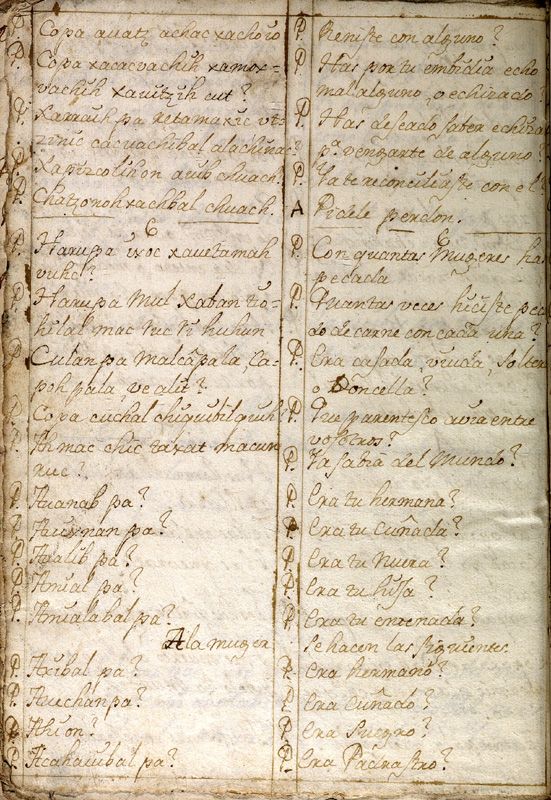 P. Copa auatz achac xachoio
P. Copa xacacvachih xamox=
vachih xauitzih cut?
P. Xarraih pa retamaxic vtzinic cacvachibal alachinac?
P. Xapixcolih on auib chuach.
P. Chatzonoh xachbal chuach.
6
P. Harupa ixoc xauetamah
vuhc?
P. Harupa Mul xaban tio=
hilal mac ruc ti huhun
P. Culan pa malcapala, ca=
poh pala, ve alit?
P. Copa cuchal
P. Ah mac chic taxat macun
ruc?
P. Auanab pa?
P. Auixnan pa?
P. Aalib pa?
P. Amial pa?
P. Amialabal pa?
A la muger
P. Axibal pa?
P. Auechan pa?
P. Ahi on?
P. Acahauibal pa?
P. Reniste con alguno?
P. Has por tu embidia echo
mal alguno, o echizado?
P. Has deseado saber echizar
pa. vengarte de alguno?
P. Ya te reconciliaste con el?
A Pidele perdon.
6
P. Con quantas Mugeres has
pecada
P. Quantas veces hiciste peca
do de carne con cada una?
P. Era casada, viuda, solter
o Doncella?
P. Que parentesco avia entre
vosotros?
P. Ya sabia del Mundo?
P. Era tu hermana?
P. Era tu Cuñada?
P. Era tu Nuera?
P. Era tu hija?
P. Era tu entenada?
Se hacen las siguientes.
P. Era hermano?
P. Era Cuñado?
P. Era Suegro?
P. Era Padrastro?